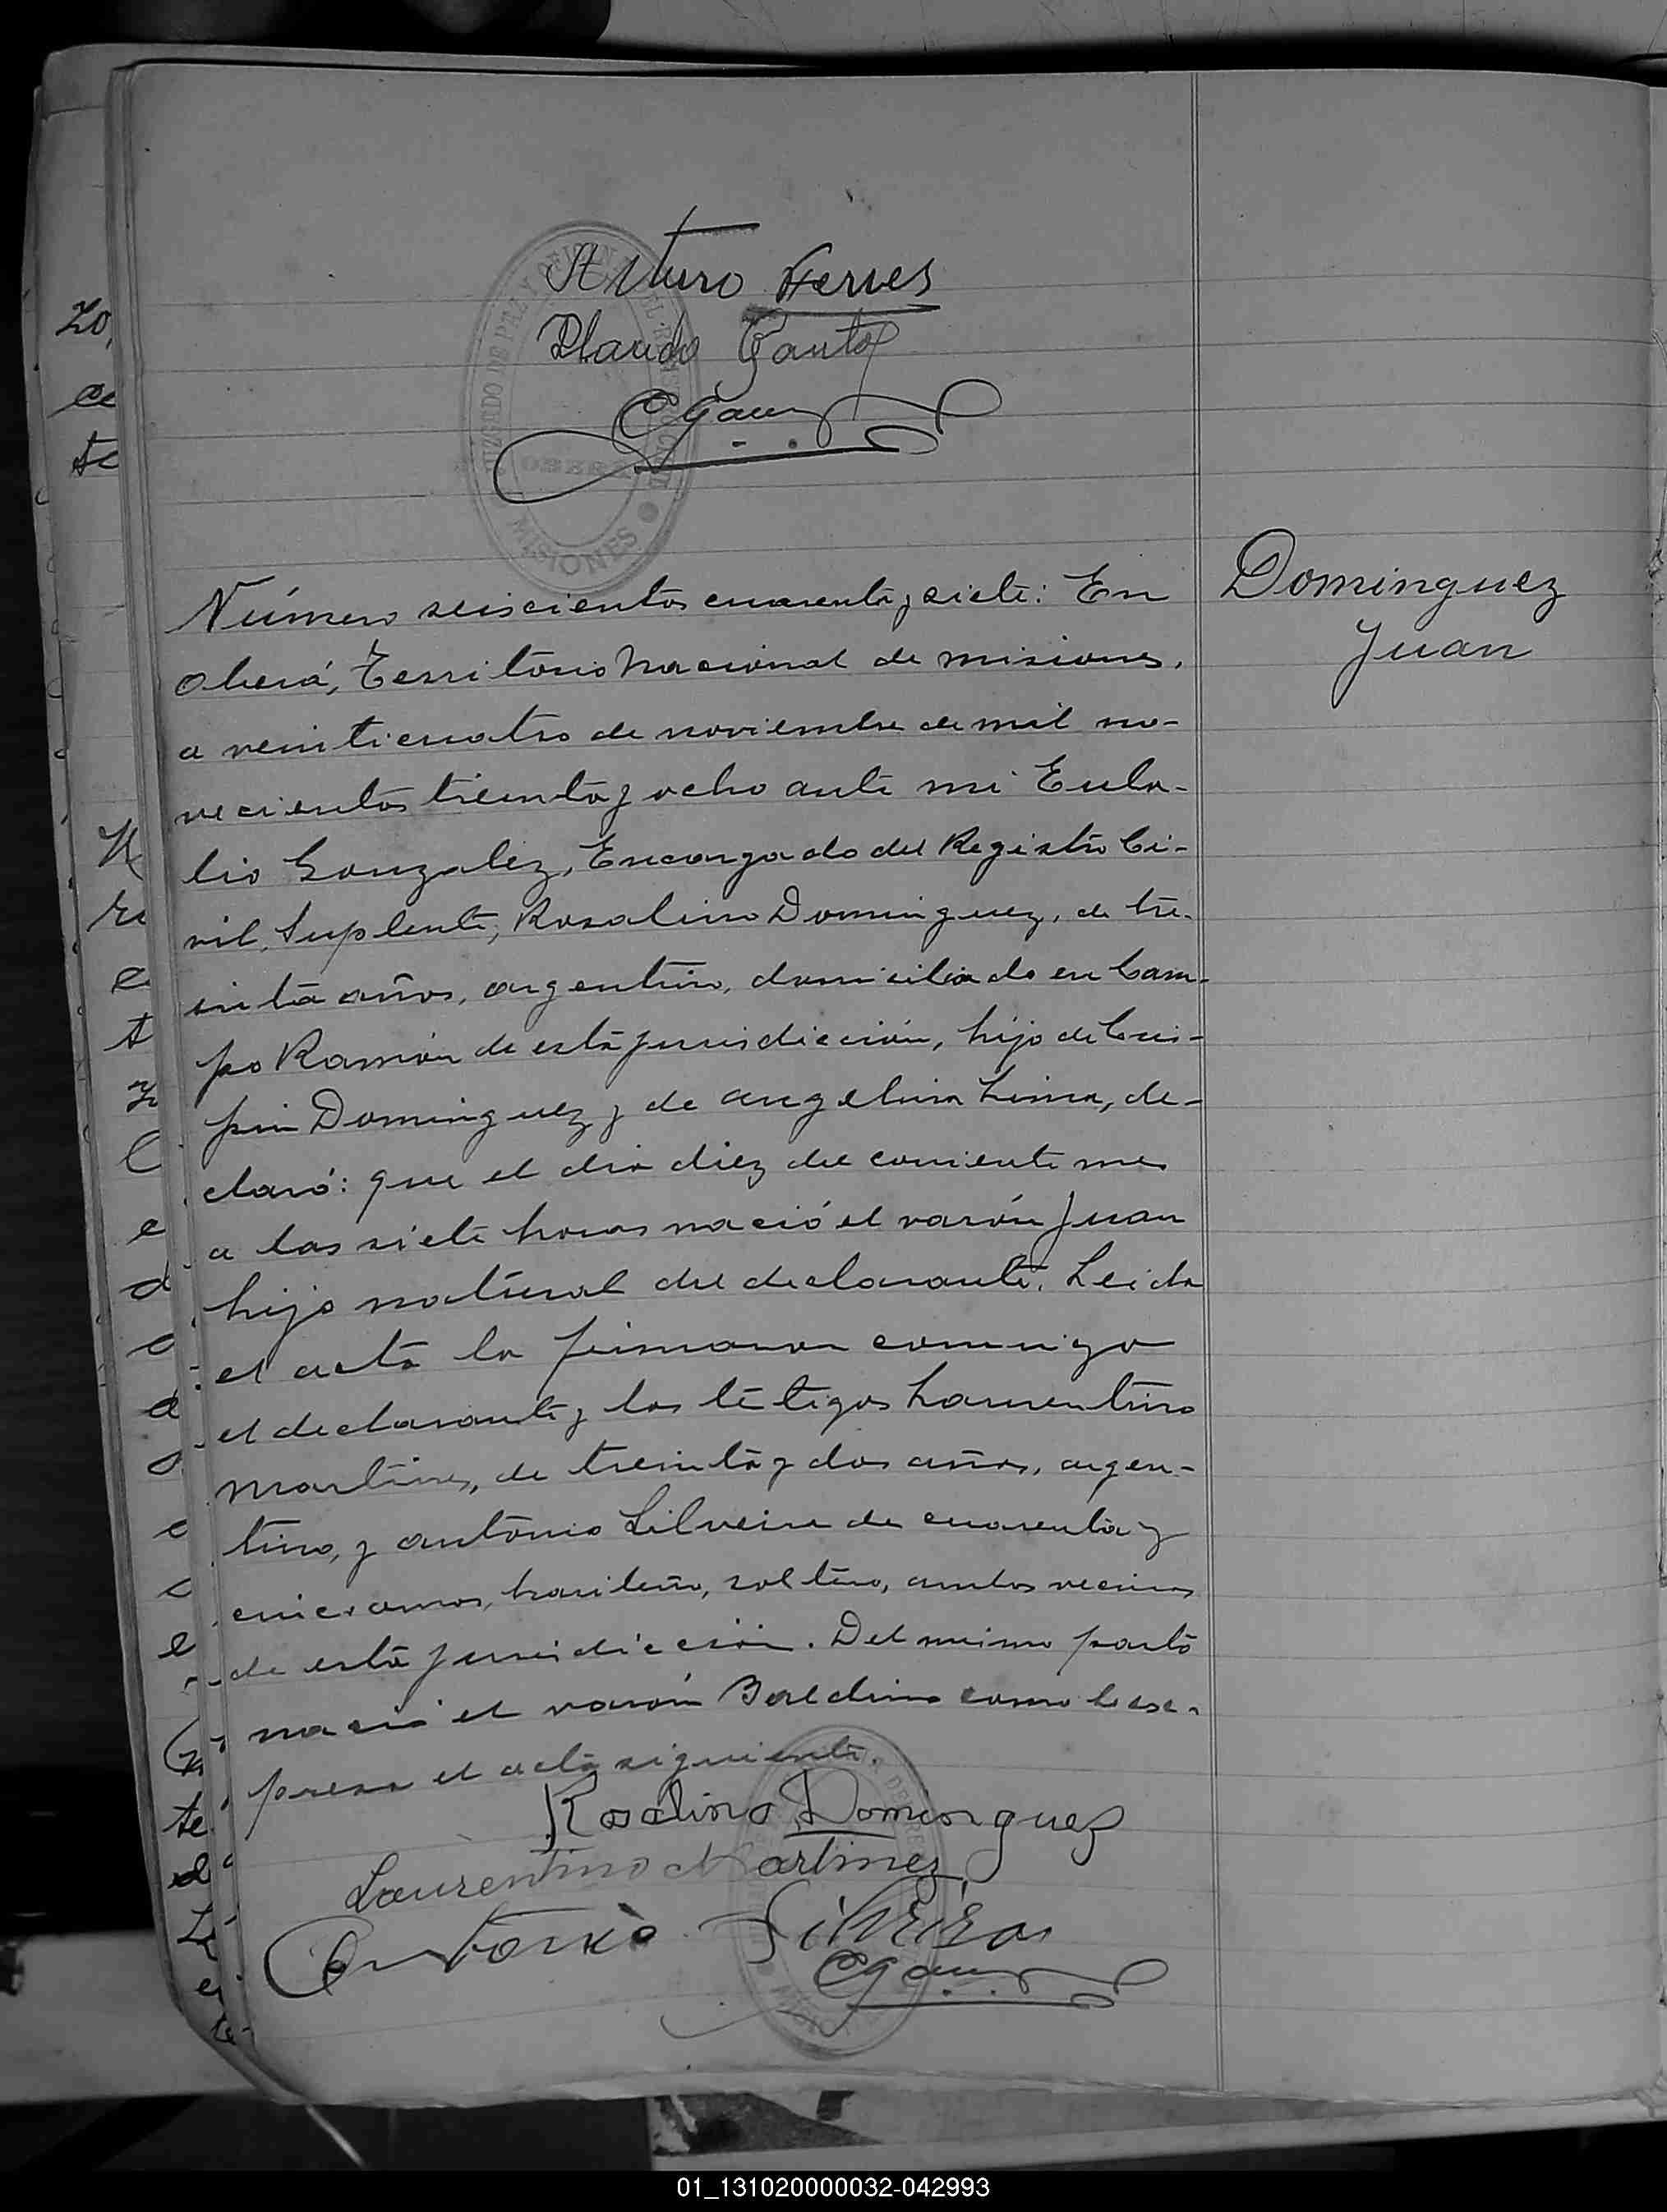 Arturo
Gauto
JUZGADO DE PAZ Y OFICINA DEL REGISTRO CIVIL
OBERA
MISIONES
Dominguez
Juan
Número seiscientos cuarenta y siete: En
Oberá, Territorio Nacional de misiones,
a veinticuatro de noviembre de mil no-
vecientos treinta y ocho ante mi Eula-
lio Gonzalez, Encargado del Registro Ci-
vil, Suplente, Rosalino Dominguez, de tre-
inta años, argentino, domiciliado en Cam-
po Ramón de esta jurisdicción, hijo de Cris-
pin Dominguez y de Angelina Lima, de-
claró: que el dia diez del corriente mes
a las siete horas nació el varón Juan
hijo natural del declarante. Leida
el acta la firmaron conmigo
el declarante y los tetigos Laurentino
Martines, de treinta y dos años, argen-
tino, y antonio Silveira de cuarenta y
años, brasileño, soltero, ambos vecinos
de esta jurisdicción. Del mismo parto
nació el varón Baldino como lo ex-
presa el acta siguiente.
Rosalino Dominguez
Laurentino Martinez
Antonio Silveira
01_131020000032-042993